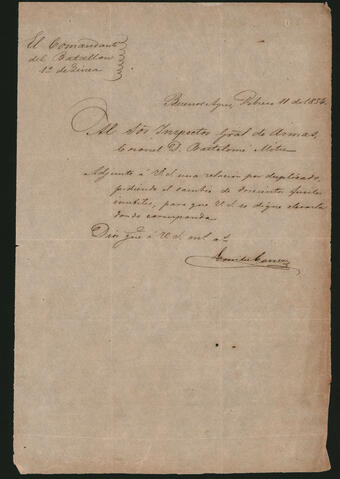 El Comandante
del Batallon
1º de Linea
Buenos Ayres, Febrero 11 de 1854.
Al Sôr Inspector Gral de Armas,
Coronel D. Bartolomé Mitre
Adjunto á V.S. una relacion por duplicado,
pidiendo el cambio de doscientos fusiles
inutiles, para que V.S. se digne elevarla
donde corresponda.
Dios gue á V.S. ms as